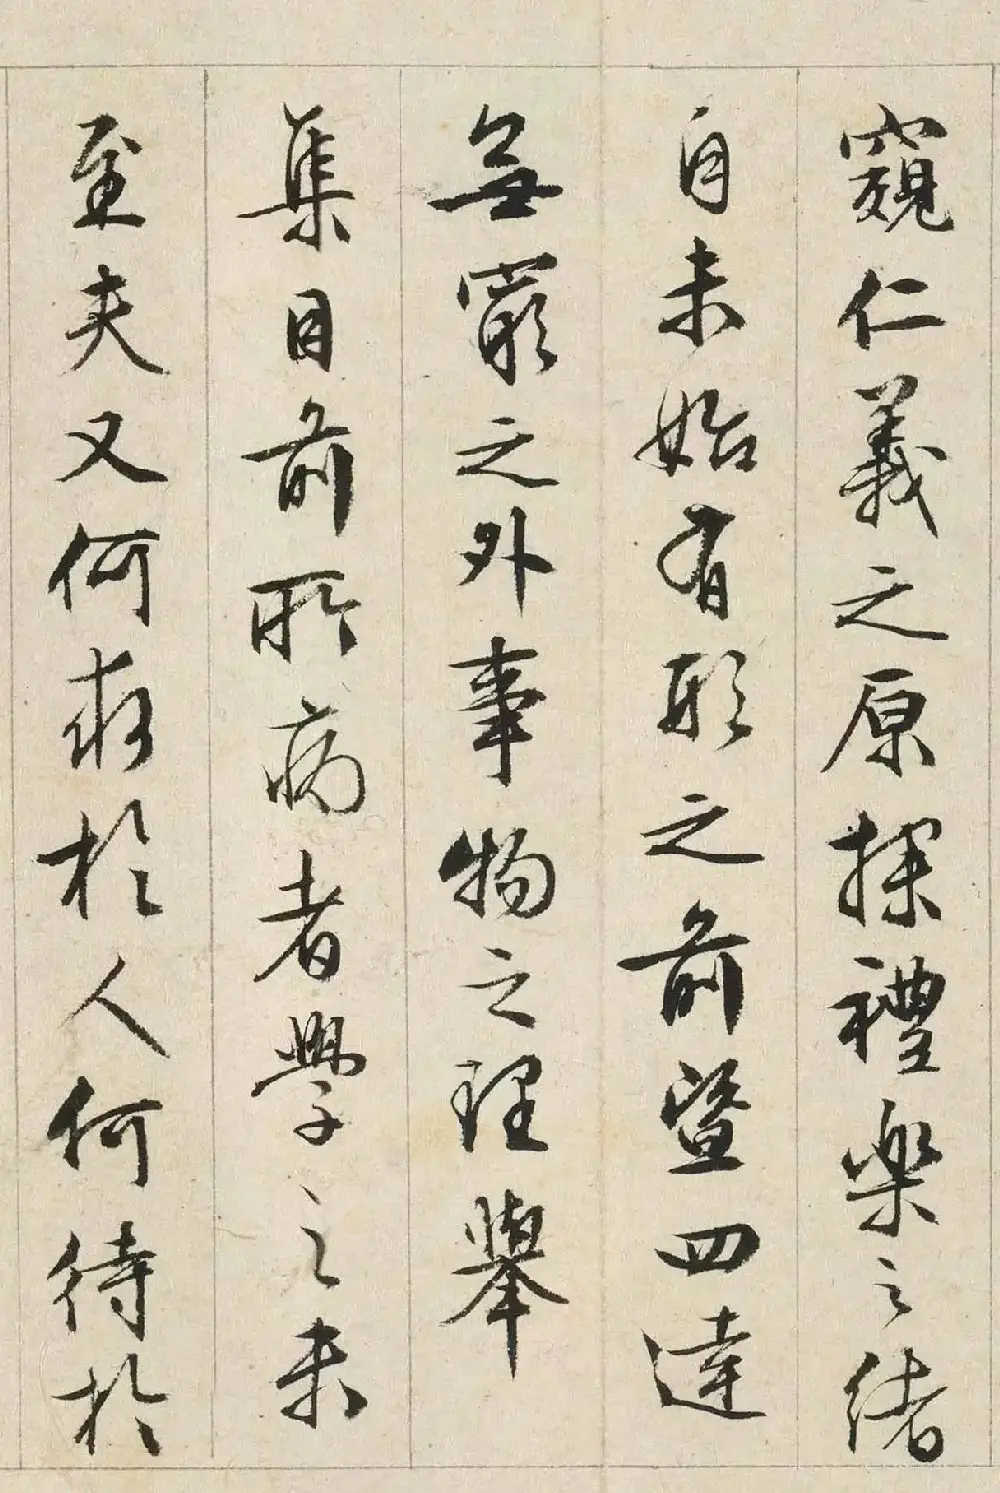 窺仁義之原探禮樂之緒
自未始有形之前曁四達
無窮之外事物之理舉
集目前所病者學之未
至夫又何求於人何待於